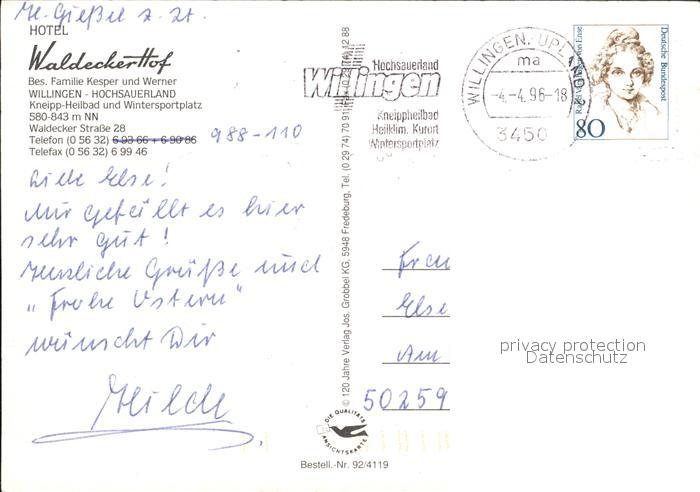 HOTEL
Waldecker Hof
Bes. Familie Kesper und Werner
WILLINGEN - HOCHSAUERLAND
Kneipp-Heilbad und Wintersportplatz
580-843 m NN
Waldecker Straße 28
Telefon (0 56 32) 6 93 66 + 6 90 86 988-110
Telefax (0 56 32) 6 99 46
Liebe Else!
Mir gefällt es hier
sehr gut!
Herzliche Grüße und
„Frohe Ostern"
wünscht Dir
Hilde
© 120 Jahre Verlag Jos. Grobbel KG, 5948 Fredeburg, Tel. (0 29 74) 70 91
Hochsauerland
Willingen
Kneippheilbad
Heilklim. Kurort
Wintersportplatz
WILLINGEN, UPLAND
ma
-4.-4.96-18
3450
Deutsche Bundespost
80
Frau
Else
Am
50259
privacy protection
Datenschutz
DIE QUALITÄTS
ANSICHTSKARTE
Bestell.-Nr. 92/4119